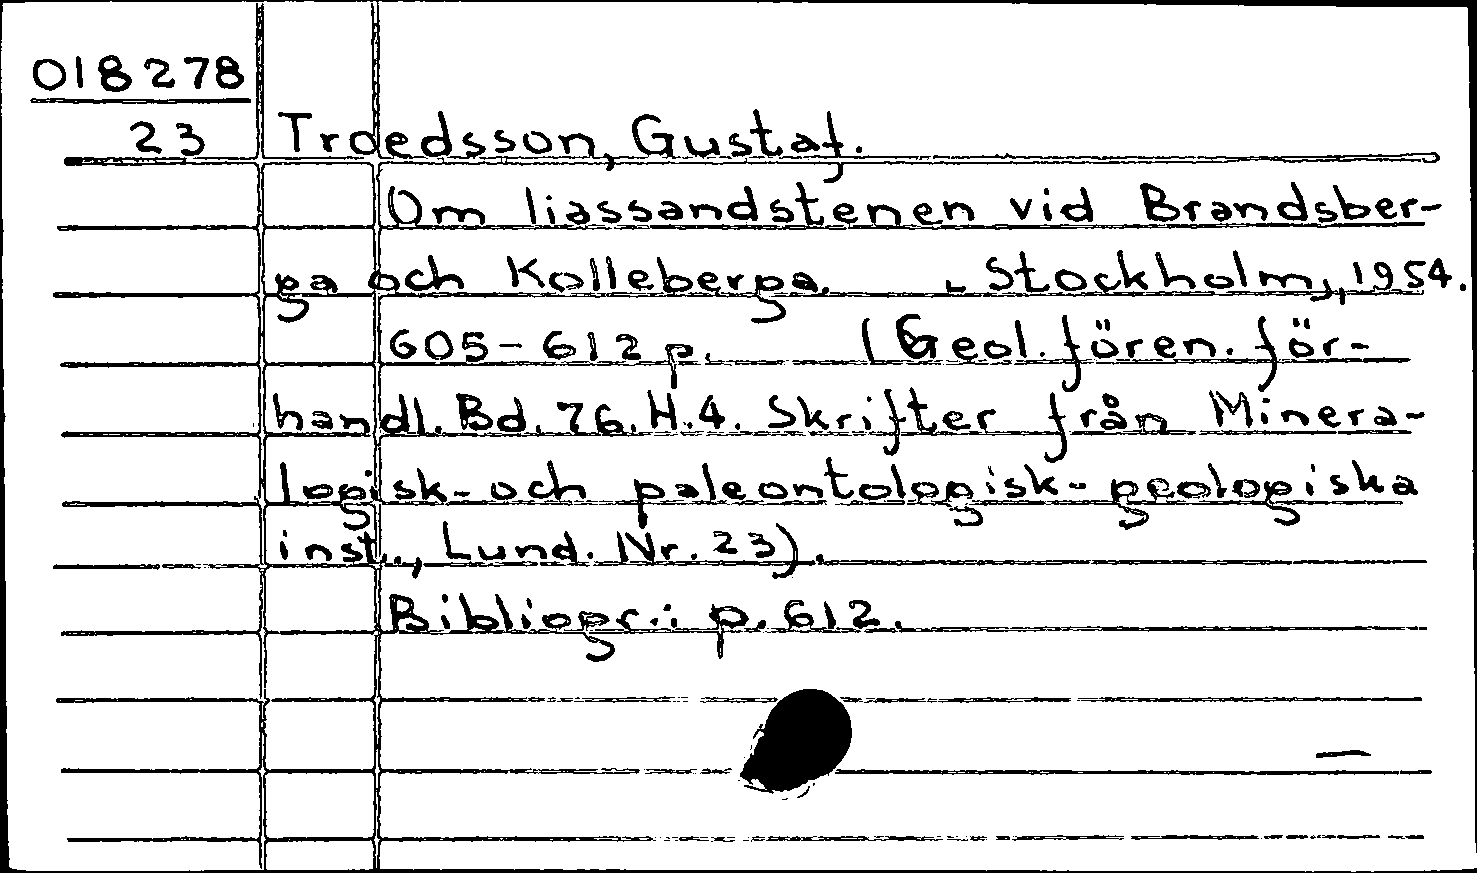 018278
23 Troedsson, Gustaf.
Om liassandstenen vid Brandsber-
ga och Kolleberga. - Stockholm, 1954.
605-612 p. (Geol. fören. för-
handl. Bd. 76. H.4. Skrifter från Minera-
logisk- och paleontologisk-geologiska
inst., Lund. Nr. 23).
Bibliogr.: p. 612.